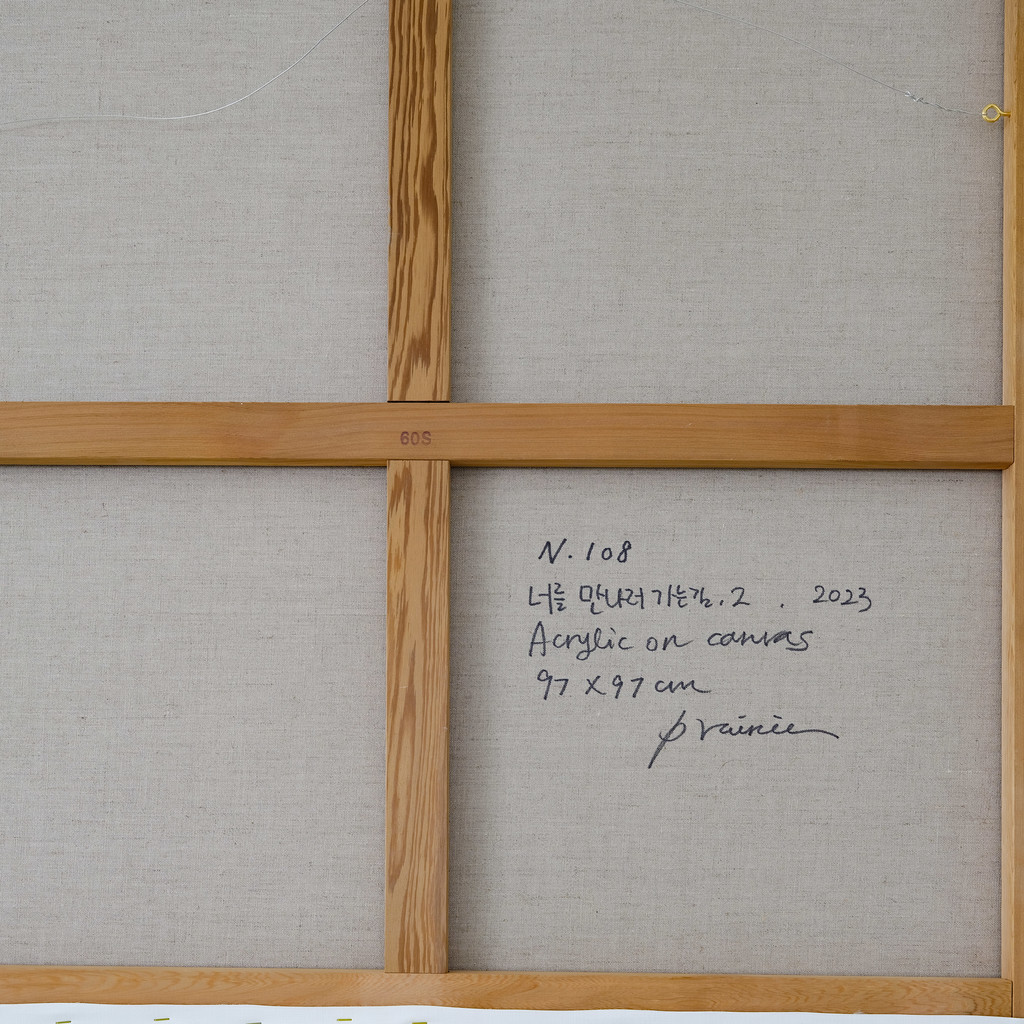 60S
N. 108
너를 만나러 가는길. 2 . 2023
Acrylic on canvas
97 X 97 cm
prairie